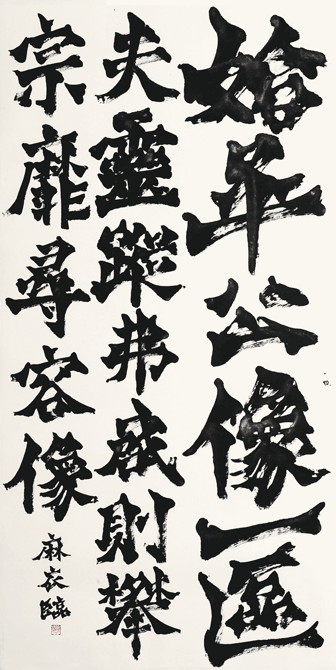 始平公像一區
夫靈蹤弗啟則攀
宗靡尋容像
麻衣臨